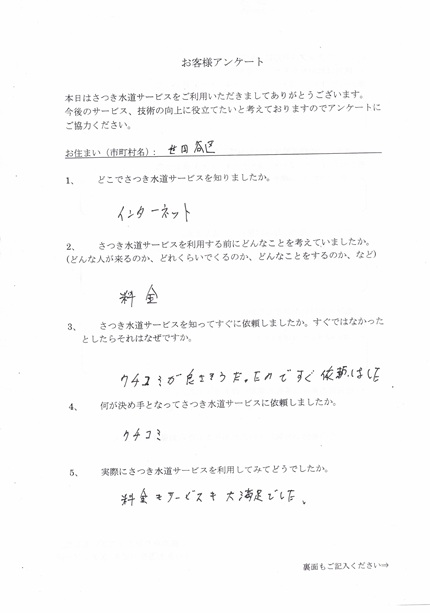 お客様アンケート
本日はさつき水道サービスをご利用いただきましてありがとうございます。
今後のサービス、技術の向上に役立てたいと考えておりますのでアンケートに
ご協力ください。
お住まい（市町村名）： 世田谷区
1、 どこでさつき水道サービスを知りましたか。
インターネット
2、 さつき水道サービスを利用する前にどんなことを考えていましたか。
（どんな人が来るのか、どれくらいでくるのか、どんなことをするのか、など）
料金
3、 さつき水道サービスを知ってすぐに依頼しましたか。すぐではなかった
としたらそれはなぜですか。
クチコミが良さそうだったのですぐ依頼しました
4、 何が決め手となってさつき水道サービスに依頼しましたか。
クチコミ
5、 実際にさつき水道サービスを利用してみてどうでしたか。
料金もサービスも大満足でした、
裏面もご記入ください⇒